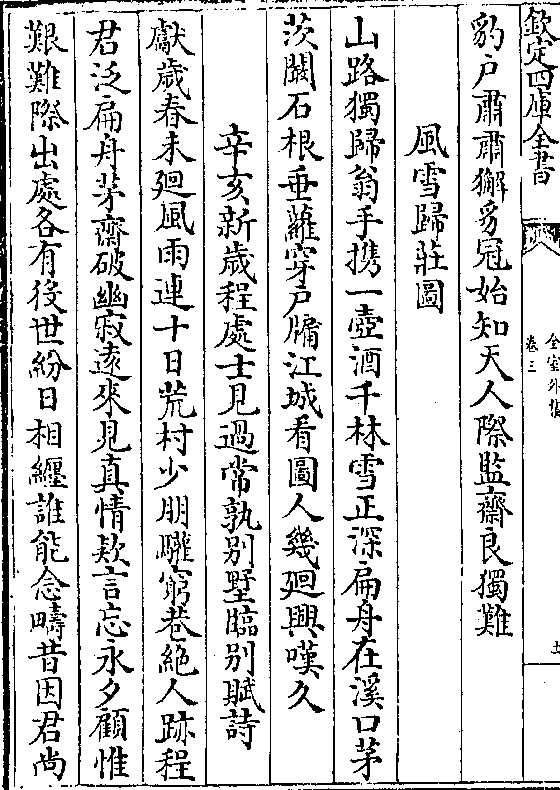 欽定四庫全書
全室外集
卷三
豹戶肅肅獬豸冠始知天人際監齋良獨難
風雪歸莊圖
山路獨歸翁手携一壺酒千林雪正深扁舟在溪口茅
茨闢石根垂蘿穿戶牖江城看圖人幾廻興嘆久
辛亥新歲程處士見過常孰别墅臨别賦詩
獻歲春未廻風雨連十日荒村少朋驩窮巷絶人跡程
君泛扁舟茅齋破幽寂逺來見真情欵言忘永夕顧惟
艱難際出處各有役世紛日相纒誰能念疇昔因君尚